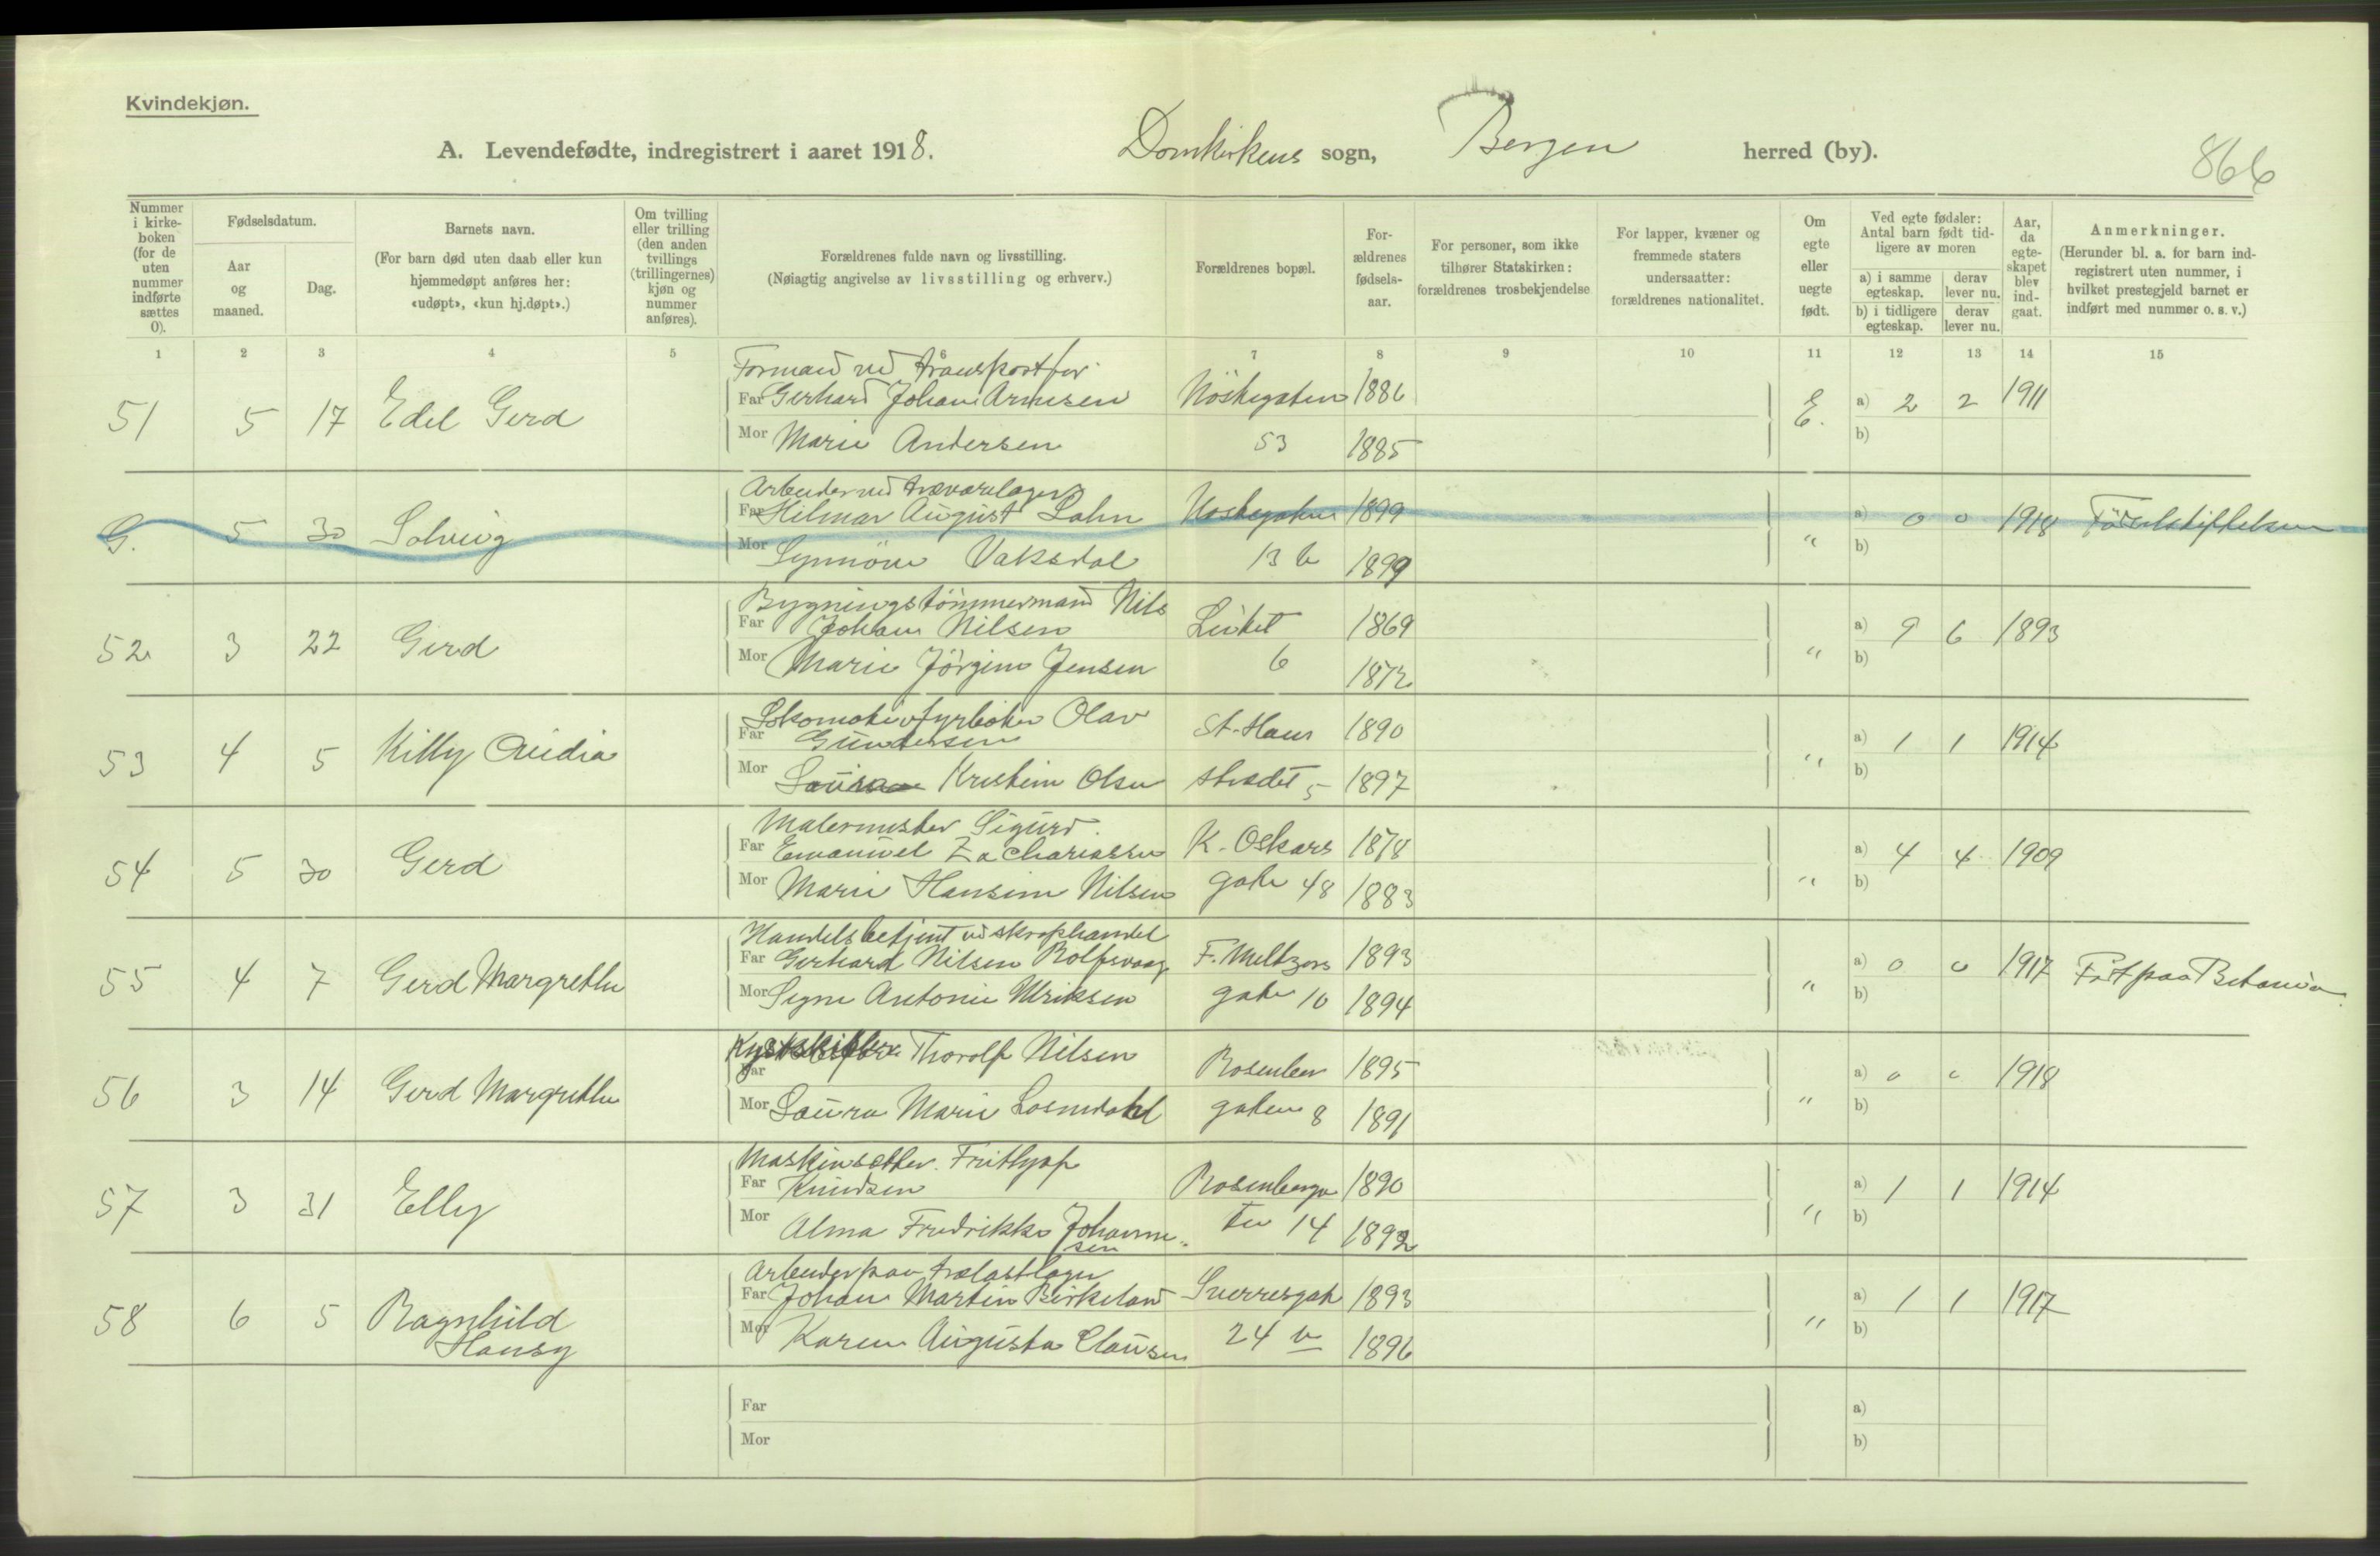 Kvindekjøn.
A. Levendefødte, indregistrert i aaret 1918. Domkirkens sogn, Bergen herred (by). 866
Nummer i kirkeboken (for de uten nummer indførte sættes 0).
Fødselsdatum.
Aar og maaned.
Dag.
Barnets navn.
(For barn død uten daab eller kun hjemmedøpt anføres her: «udøpt», «kun hj.døpt».)
Om tvilling eller trilling (den anden tvillings (trillingernes) kjøn og nummer anføres).
Forældrenes fulde navn og livsstilling.
(Nøiagtig angivelse av livsstilling og erhverv.)
Forældrenes bopæl.
Forældrenes fødselsaar.
For personer, som ikke tilhører Statskirken: forældrenes trosbekjendelse
For lapper, kvæner og fremmede staters undersaatter: forældrenes nationalitet.
Om egte eller uegte født.
Ved egte fødsler: Antal barn født tidligere av moren
a) i samme egteskap. derav lever nu.
b) i tidligere egteskap. derav lever nu.
Aar, da egteskapet blev indgaat.
Anmerkninger.
(Herunder bl. a. for barn indregistrert uten nummer, i hvilket prestegjeld barnet er indført med nummer o. s. v.)
1 2 3 4 5 6 7 8 9 10 11 12 13 14 15
Formand ved transportfor.
51 5 17 Edel Gerd Far Gerhard Johan Arnesen Nöstegaten 1886 E. a) 2 2 1911
Mor Marie Andersen 53 1885 b)
Arbeider ved trævarelager
G. 5 30 Solveig Far Hilmar August Lahn Nøstegaten 1899 " a) 0 0 1918 Födselsstiftelsen
Mor Synnöve Vaksdal 13 b 1899 b)
Bygningstömmermand Nils
52 3 22 Gerd Far Johan Nilsen 1869 " a) 9 6 1893
Mor Marie Jörgine Jensen 6 1872 b)
Lokomotivfyrböter Olav
53 4 5 Killy Far Gundersen St. Hans 1890 " a) 1 1 1914
Mor Kristine Olsen strædet 5 1897 b)
Malermester Sigurd
54 5 30 Gerd Far Emanuel Zachariassen K. Oskars 1878 " a) 4 4 1909
Mor Marie Hansine Nilsen gate 48 1883 b)
Handelsbetjent ved skraphandel
55 4 7 Gerd Margrethe Far Gerhard Nilsen Rolfsvaag F. Meltzers 1893 " a) 0 0 1917 Født paa Betania
Mor Signe Antonie Ulriksen gate 10 1894 b)
Kystskipper Thorolf Nilsen
56 3 14 Gerd Margrethe Far Rosenber 1895 " a) 0 0 1918
Mor Laura Marie gaten 8 1891 b)
Maskinsætter Frithjof
57 3 31 Elly Far Knudsen Rosenberga 1890 " a) 1 1 1914
Mor Alma Fredrikke Johanne- ten 14 1892 b)
sen
Arbeider paa trælastlager
58 6 5 Ragnhild Far Johan Martin Birkeland Sverresgate 1893 " a) 1 1 1917
Hansy Mor Karen Augusta Clausen 24 b 1896 b)
Far a)
Mor b)